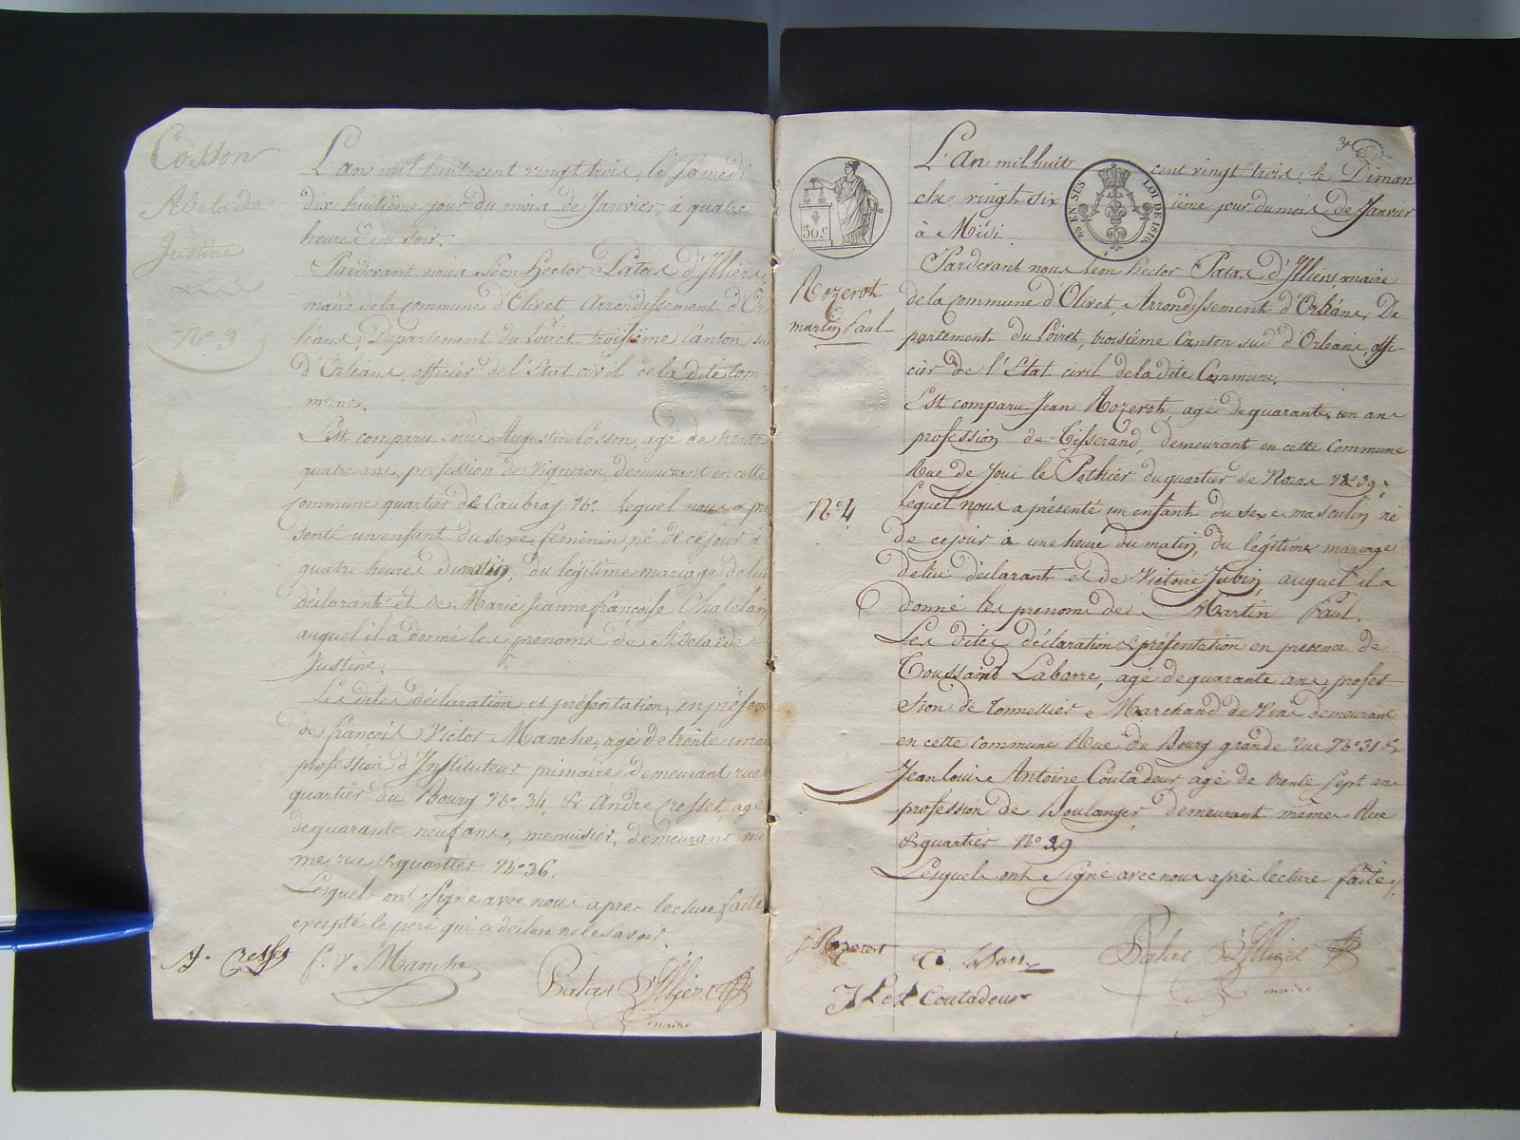 Cosson
Adelaïde
Justine
No. 3
L'an mil huit cent vingt trois, le Samedi
dix huitième jour du mois de Janvier, à quatre
heures du soir.
Pardevant nous Léon Hector Patas d'Illiers,
maire de la commune d'Olivet, Arrondissement d'Or
léans, Département du Loiret, troisième Canton sud
d'Orléans, officier de l'Etat civil de la dite Com
mune.
Est comparu Augustin Cosson, agé de trente
quatre ans, profession de vigneron, demeurant en cette
commune quartier de Caubray No. lequel nous a pré
senté un enfant du sexe féminin, né de ce jour à
quatre heures du matin, du légitime mariage de lui
déclarant et de Marie Jeanne françoise Chatelain
auquel il a donné les prenoms de Adelaïde
Justine.
Les dites déclaration et présentation, en présence
de françois Victor Manche, agé de trente un ans
profession d'Instituteur primaire demeurant rue
quartier du Bourg No. 34, & André Cresset, agé
de quarante neuf ans, menuisier, demeurant mê
me rue & quartier No. 36.
Lesquels ont signé avec nous après lecture faite
excepté le père qui a déclaré ne le savoir.
f. V. Manche
Patas D'Illiers
maire
50.c
EN SUS
LOI DE 1816
Rozerot
martin Paul
No. 4
L'An mil huit cent vingt trois, le Diman
che vingt six ième jour du mois de Janvier
à Midi
Pardevant nous Léon Hector Patas d'Illiers, maire
de la Commune d'Olivet, Arrondissement d'Orléans, Dé
partement du Loiret, troisième Canton sud d'Orléans, offi-
cier de l'Etat civil de la dite Commune.
Est comparu Jean Rozerot, agé de quarante un ans
profession de Tisserand, demeurant en cette Commune
Rue de Joui le Pothier du quartier de Noras No. 39.
lequel nous a présenté un enfant du sexe masculin né
de ce jour à une heure du matin, du légitime mariage
de lui déclarant et de Victoire Jubin, auquel il a
donné les prenoms de Martin Paul.
Les dites déclaration & présentation en presence de
Toussaint Labarre, agé de quarante ans, profes-
sion de Tonnellier & Marchand de Vins demeurant
en cette commune Rue du Bourg grande rue No. 31 &
Jean louis Antoine Coutadeur agé de trente sept ans
profession de Boulanger, demeurant même Rue
& quartier No. 39
Lesquels ont Signé avec nous après lecture faite.
j. Rozerot
Patas D'Illiers
maire
Coutadeur